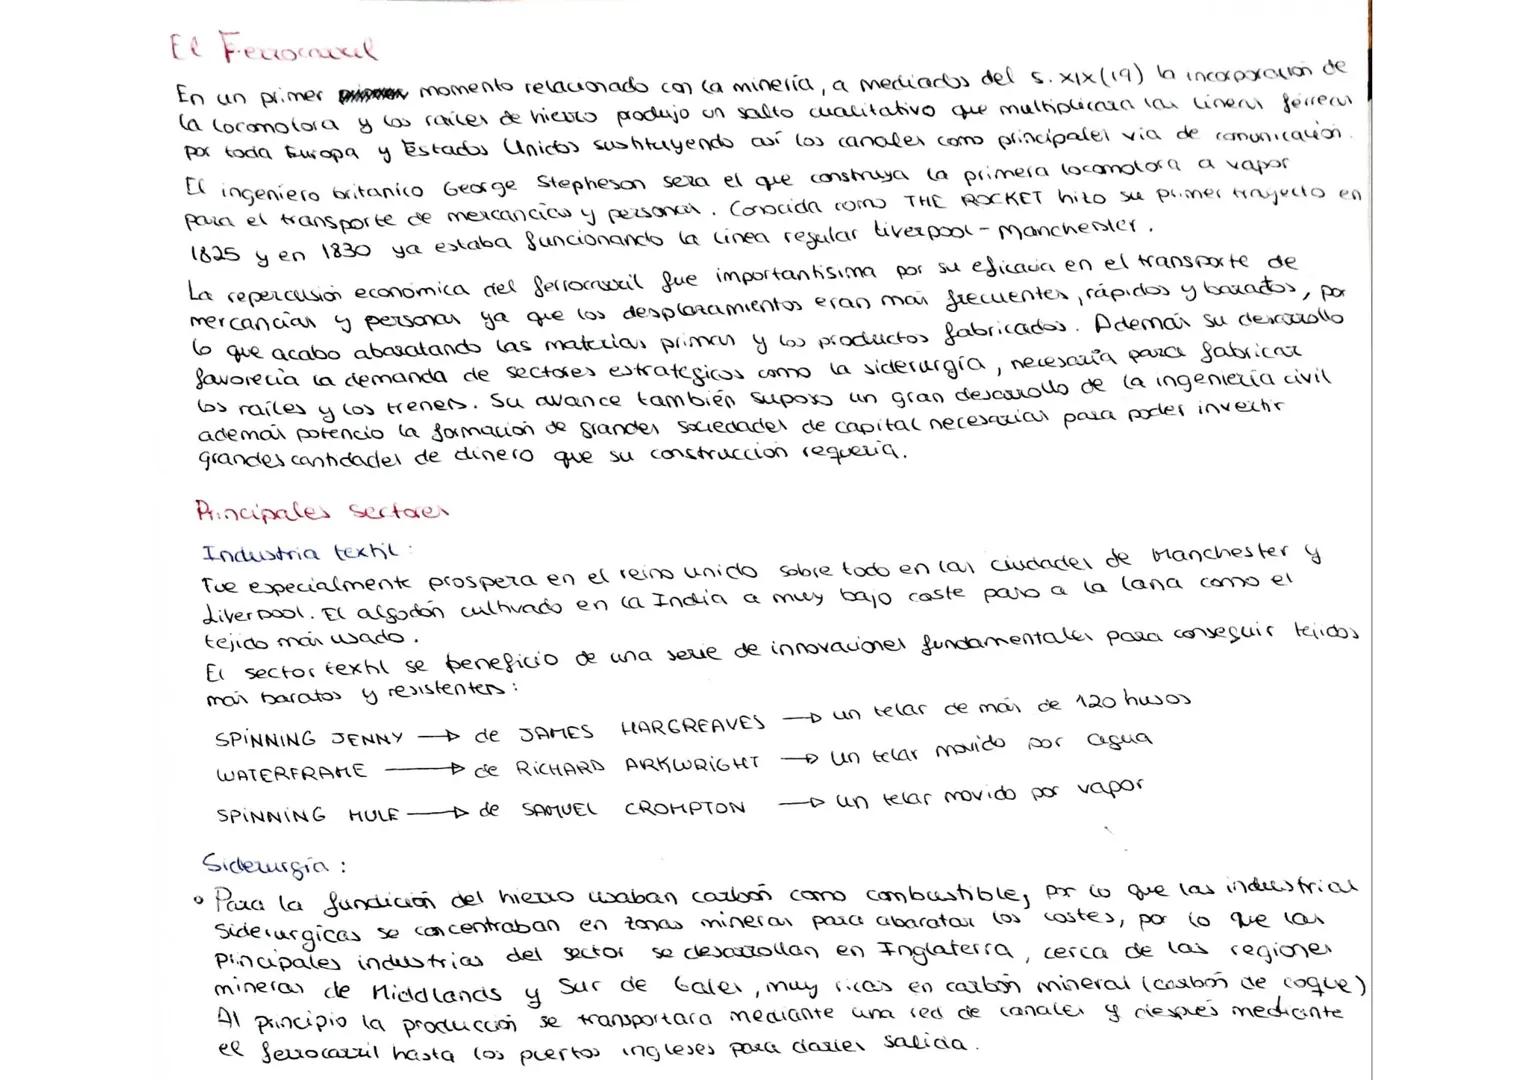 El Ferrocarril
En un primer momento relacionado con la minería, a mediados del s. XIX (19) la incorporación de
la locomotora y los raíles de hierro produjo un salto cualitativo que multiplicara las lineas férreas
por toda Europa y Estados Unidos sustituyendo así los canales como principales via de comunicación.
El ingeniero britanico George Stepheson sera el que construya la primera locomotora a vapor
para el transporte de mercancias y personas. Conocida como THE ROCKET hizo su primer trayecto en
1825 y en 1830 ya estaba funcionando la linea regular Liverpool - Manchester.
La repercusión economica del ferrocarril fue importantisima por su eficacia en el transporte de
mercancias y personas ya que los desplazamientos eran más frecuentes, rápidos y baratos, por
lo que acabo abaratando las materias primas y los productos fabricados. Además su desarrollo
favorecia la demanda de sectores estrategicos como la siderurgía, necesaria para fabricar
los raíles y los trenes. Su avance también supuso un gran desarrollo de la ingeniería civil
además potencio la formación de grandes sociedades de capital necesarias para poder invertir
grandes cantidades de dinero que su construccion requeria.
Principales sectores
Industria textil:
Fue especialmente prospera en el reino unido sobre todo en las ciudades de Manchester y
Liverpool. El algodón cultivado en la India a muy bajo coste paso a la lana como el
tejido más usado.
El sector textil se beneficio de una serie de innovaciones fundamentales para conseguir tejidos
más baratos y resistentes:
SPINNING JENNY → de JAMES HARGREAVES → un telar de más de 120 husos
WATERFRAME → de RICHARD ARKWRIGHT → un telar movido por agua
SPINNING MULE → de SAMUEL CROMPTON → un telar movido por vapor
Siderurgía:
• Para la fundición del hierro usaban carbón como combustible, por lo que las industrias
siderurgicas se concentraban en zonas mineras para abaratar los costes, por lo que las
principales industrias del sector se desarrollan en Inglaterra, cerca de las regiones
mineras de Middlands y Sur de Gales, muy ricas en carbón mineral (carbón de coque)
Al principio la producción se transportara mediante una red de canales y después mediante
el ferrocarril hasta los puertos ingleses para darles salida.